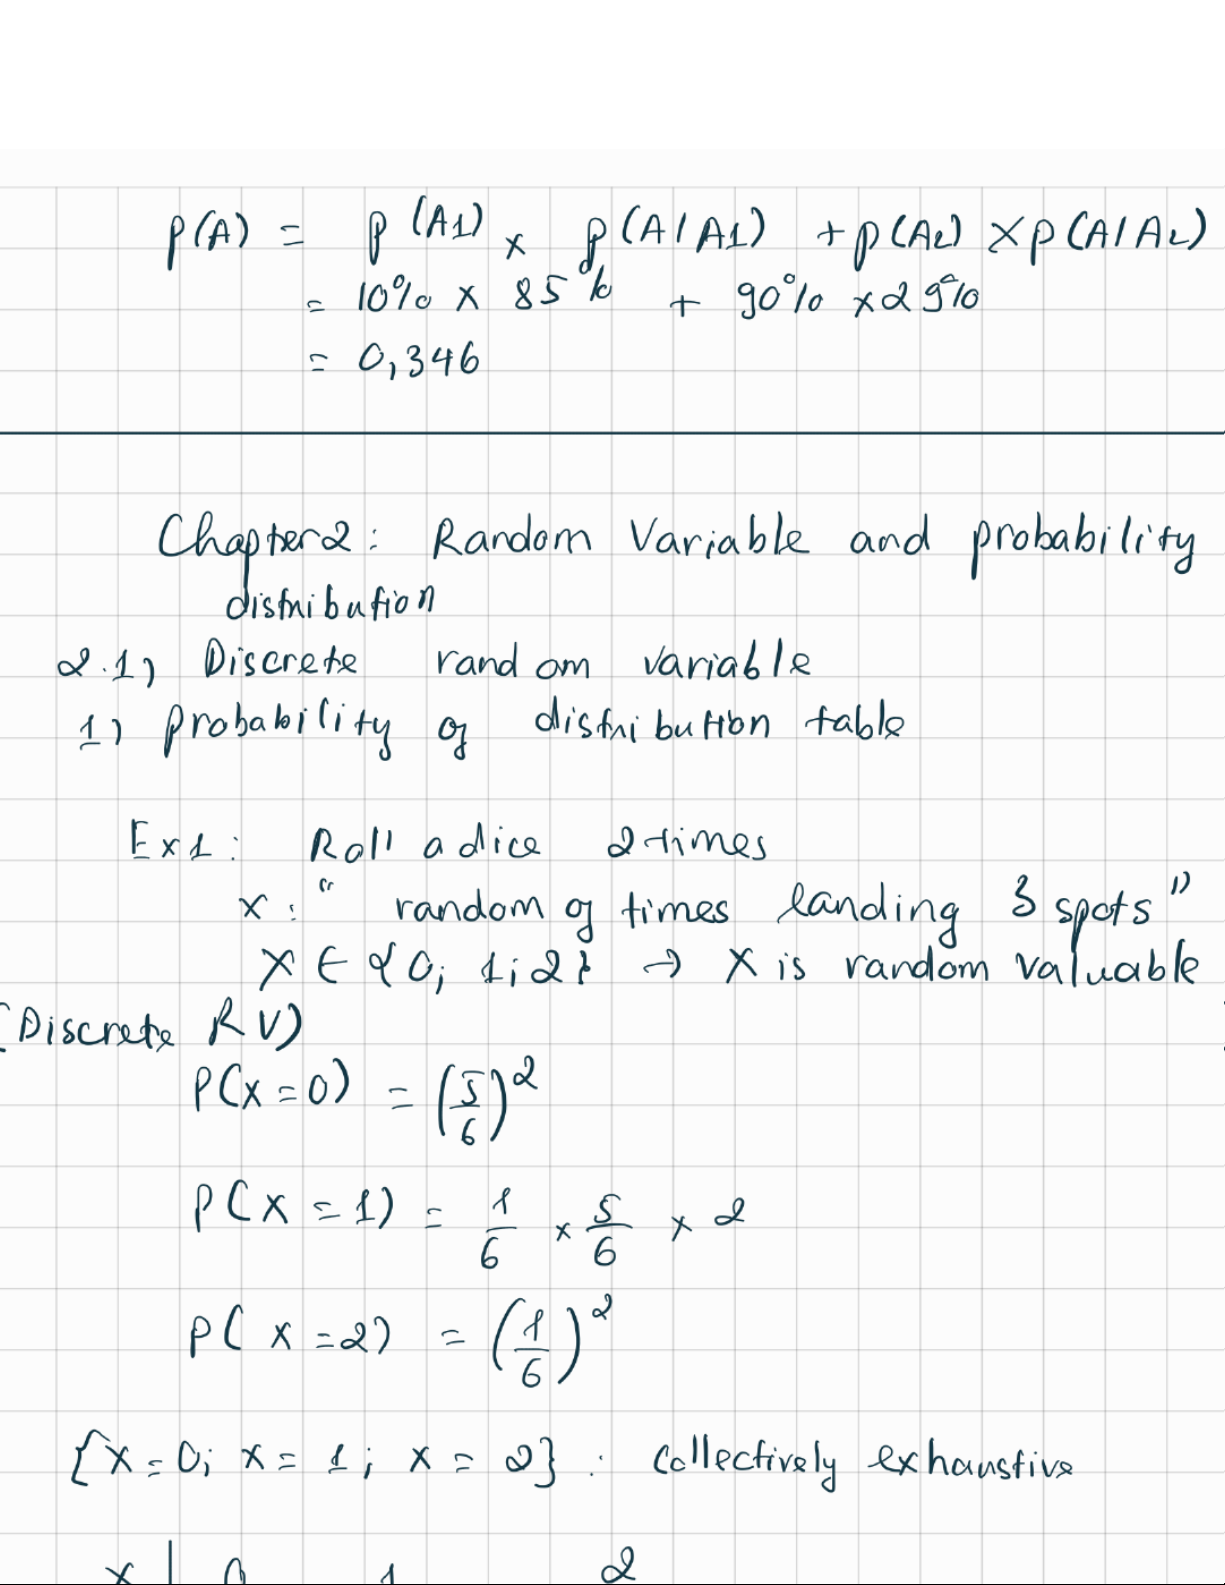 P(A) = P(A1) × P(A/A1) + P(A2) × P(A/A2)
= 10% × 85% + 90% × 29%
= 0,346
Chapter 2: Random Variable and probability
distribution
2.1) Discrete random variable
1) Probability of distribution table
Ex1: Roll a dice 2 times
X: " random of times landing 3 spots "
X ∈ {0; 1; 2} → X is random valuable
(Discrete RV)
P(X = 0) = (5/6)²
P(X = 1) = 1/6 × 5/6 × 2
P(X = 2) = (1/6)²
{X = 0; X = 1; X = 2} : collectively exhaustive
X | 0 1 2